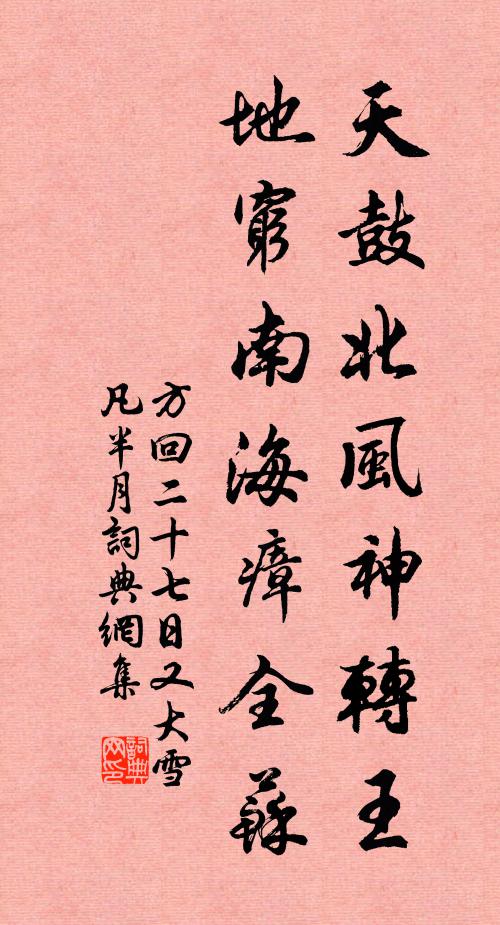 天鼓北風神轉王
地窮南海瘴全蘇
方回二十七日又大雪
凡半月詞典網集
詞典網印